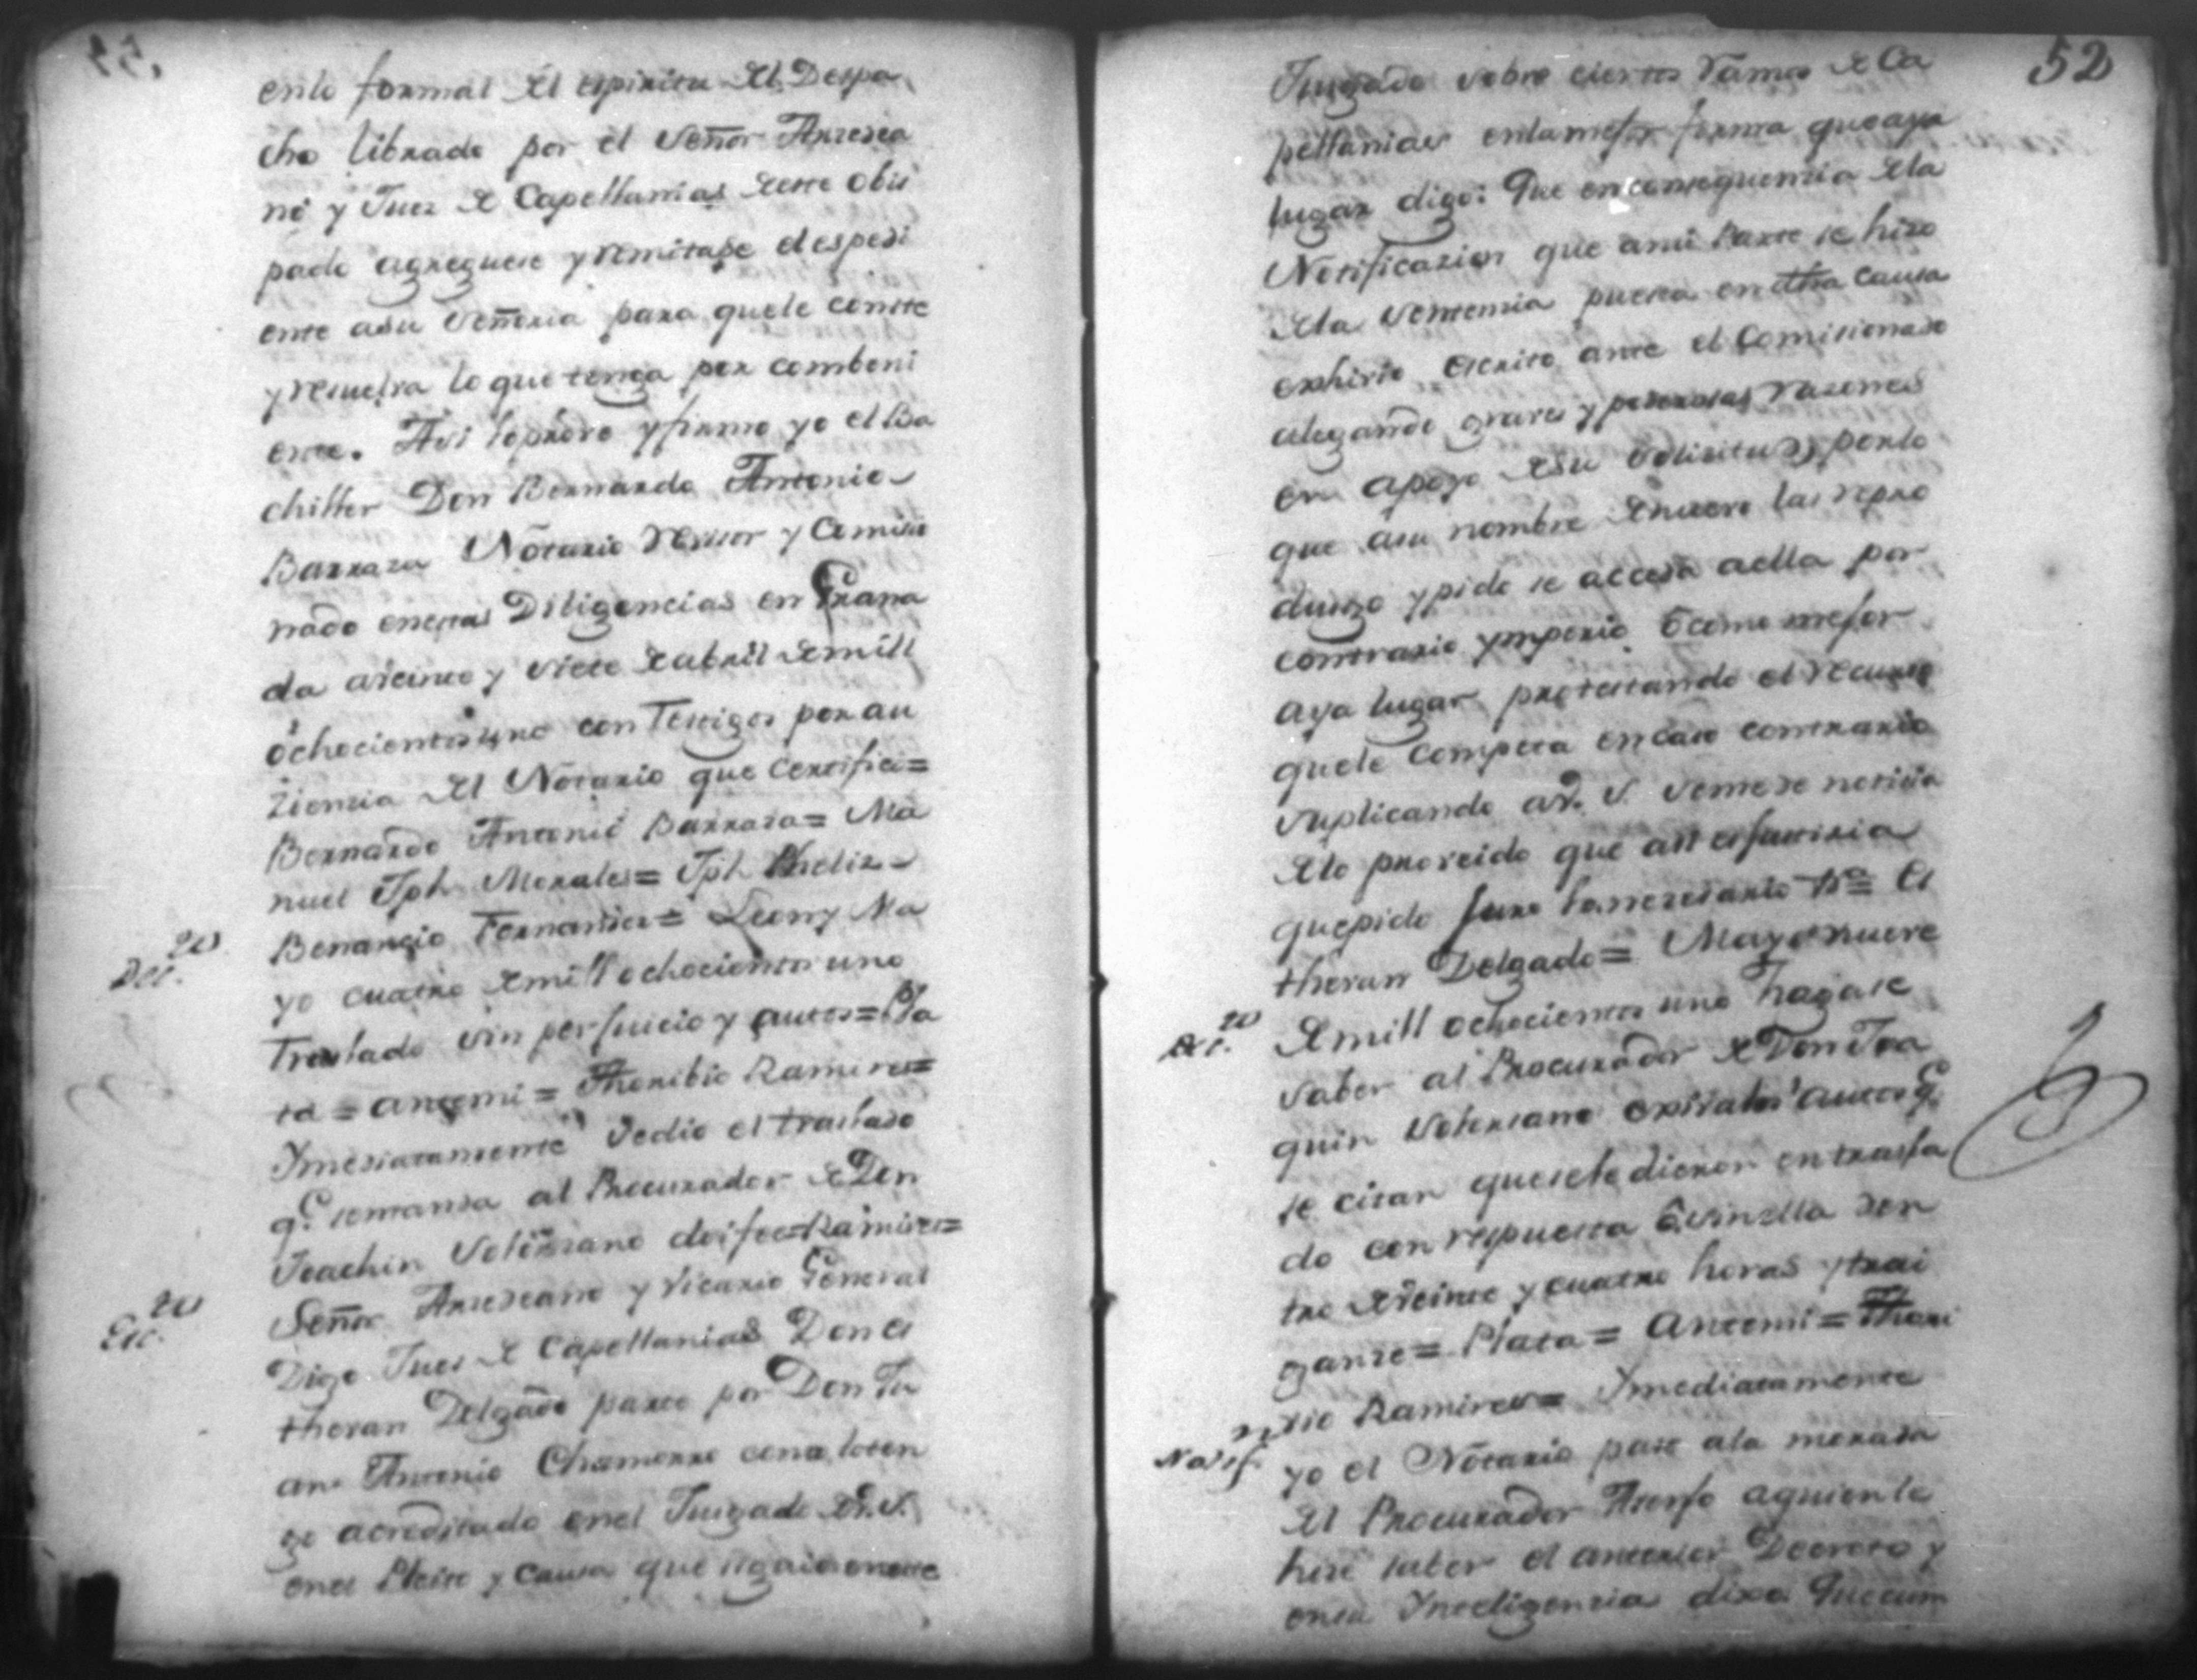 enlo formal del espiritu del Despa
cho librado por el Señor Arzedea
no y Juez de Capellanias deste obis
pado agreguese y remitase el espedi
ente asu Señoria para quele conste
y resuelva lo que tenga por combeni
ente. Asi loproveo y firmo yo el Ba
chiller Don Bernardo Antonio
Barraza Notario Revisor y Comicio
nado enestas Diligencias en Grana
da aveinte y siete de abril de mill
ochocientos uno con Testigos por au
ziencia del Notario que Certifico=
Bernardo Antonio Barraza= Ma
nuel Jph. Morales= Jph. Feliz
Benancio Fernandez= Leon y Ma
Dec.to
yo cuatro de mill ochocientos uno
Traslado sin perjuicio y autos= Pla
ta = antemi = Thoribio Ramires=
Ymediatamente sedio el traslado
q.e semanda al Procurador de Don
Joachin Solorzano doifee=Ramires=
Esc.to
Señor Arzedeano y Vicario General
Digo Jues de Capellanias Don Es
thevan Delgado parte por Don Ju
an Antonio Chamorro como loten
go acreditado enel Jusgado de V.S.
enel Pleito y Causa que sigaio eneste
52
Jusgado sobre ciertos Ramos de Ca
pellanias enlamejor forma que aya
lugar digo: Que enconsequenzia dela
Notificazion que ami Parte se hizo
dela Sentenzia puesta en dha Causa
exhivio escrito ante el Comisionado
alegando graves y poderosas razones
en apoyo desu Solicitud, porlo
que asu nombre denuevo las repro
dusgo y pido se acceda aella por
contrario ymperio o como mejor
aya lugar protestando el recurso
quele competa encaso contrario
suplicando a V.S. seme de noticia
delo proveido que asi es justicia
quepido juro lonezesario &a Es
thevan Delgado= Mayo nueve
Dec.to
de mill ochocientos uno Hagase
saber al Procurador de Don Joa
quin Solorzano exivalos autos q.e
se citan quesele dieron entrasla
do con respuesta o sinella den
tro de veinte y cuatro horas y trai
ganze= Plata= Antemi= Thori
vio Ramires= Ymediatamente
Notif.n
yo el Notario pase ala morada
del Procurador aquien le
hize saber el anterior Decreto y
ensu Ynteligenzia dixo Quecum